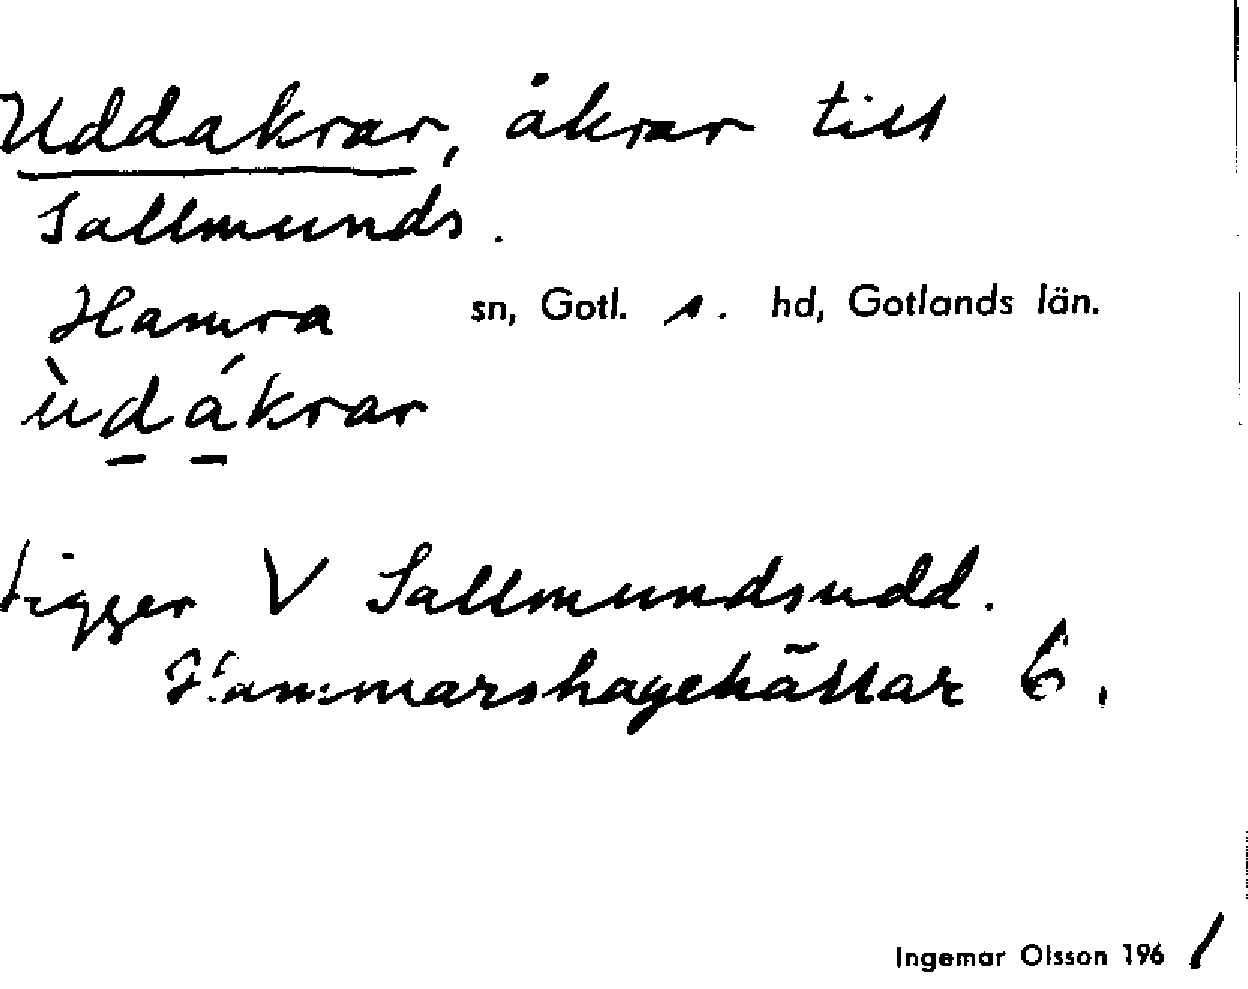 Uddakrar, åkrar till
Sallmunds.
Hamra sn, Gotl. s. hd, Gotlands län.
ùdákrar
ligger V Sallmundsudd.
Hammarshagehällar 6.
Ingemar Olsson 1961